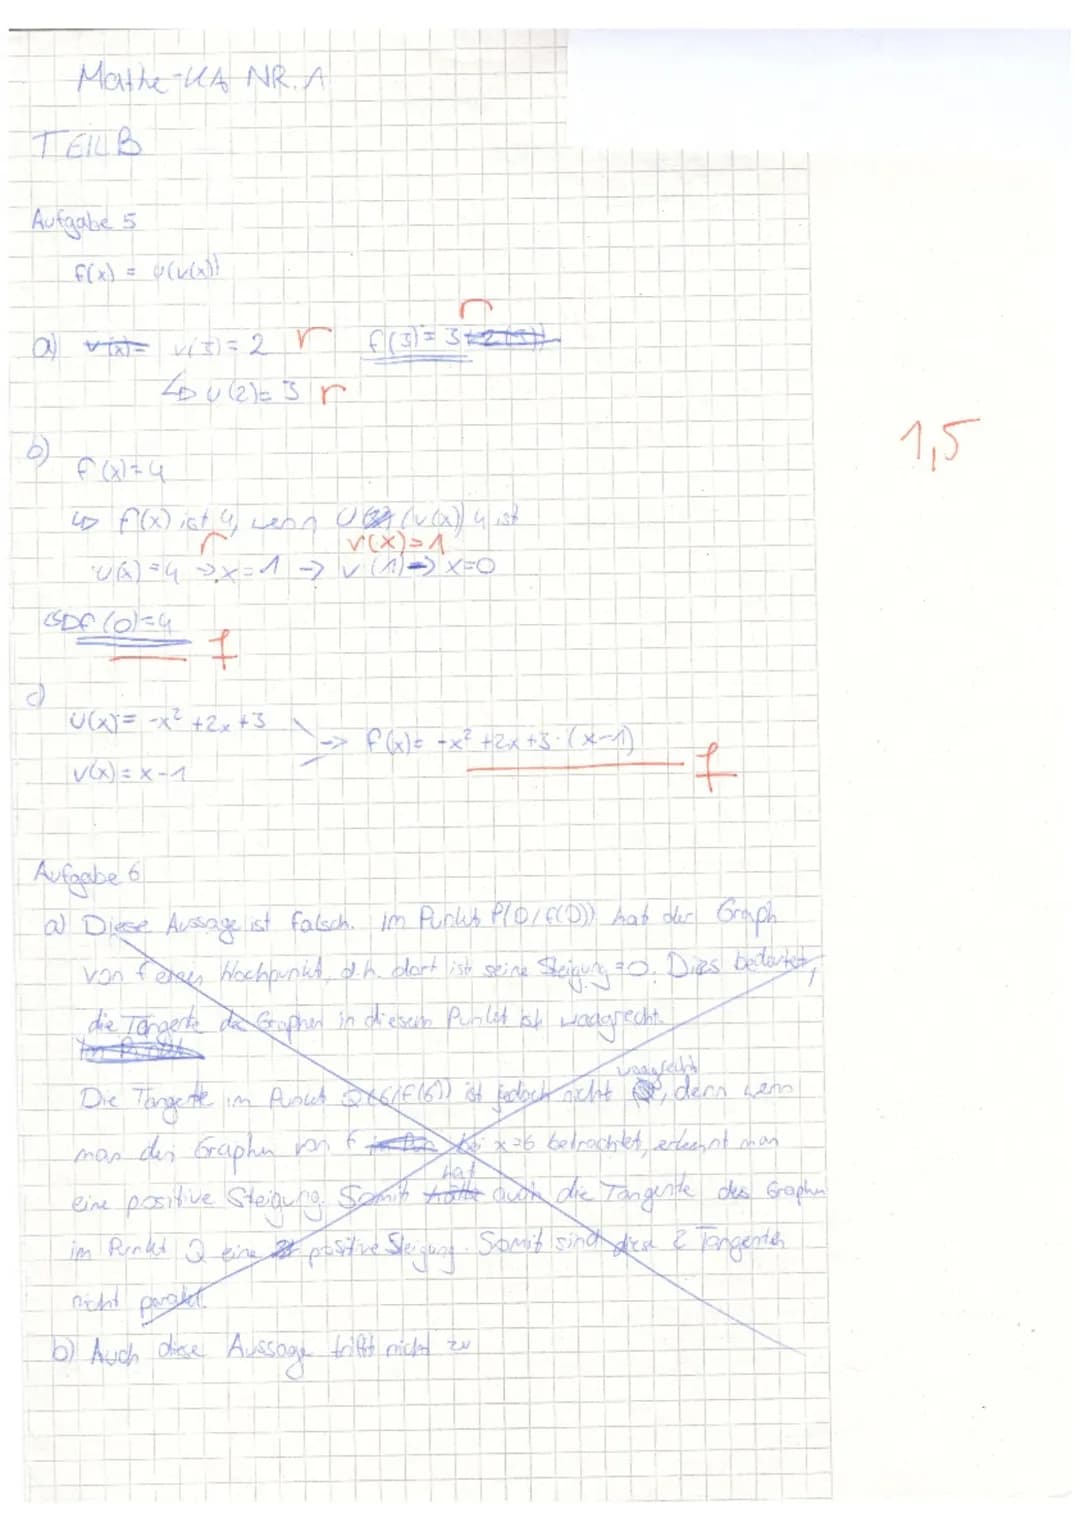 Mathe-KA NR. 1
TEIL B
Aufgabe 5
f(x) = u(v(x))
a) v(x)= v(3) = 2 r f(3) = 3
↳ u(2) = 3 r
1,5
b)
f(x) = 4
↳ f(x) ist 4, wenn u(v(x)) 4 ist
v(x) = 1
u(x) = 4 → x = 1 → v(1) → x = 0
↳ f(0) = 4 f
c)
u(x) = -x² + 2x + 3
→ f(x) = -x² + 2x + 3 · (x-1) f
v(x) = x - 1
Aufgabe 6
a) Diese Aussage ist falsch. Im Punkt P(0/f(0)) hat der Graph
von f einen Hochpunkt, d.h. dort ist seine Steigung = 0. Dies bedeutet,
die Tangente des Graphen in diesem Punkt ist waagrecht.
Im Punkt
waagrecht
Die Tangente im Punkt Q(6/f(6)) ist jedoch nicht , denn wenn
man den Graphen von f bei x=6 betrachtet, erkennt man
hat
eine positive Steigung. Somit hätte auch die Tangente des Graphen
im Punkt Q eine positive Steigung. Somit sind diese 2 Tangenten
nicht parallel.
b) Auch diese Aussage trifft nicht zu